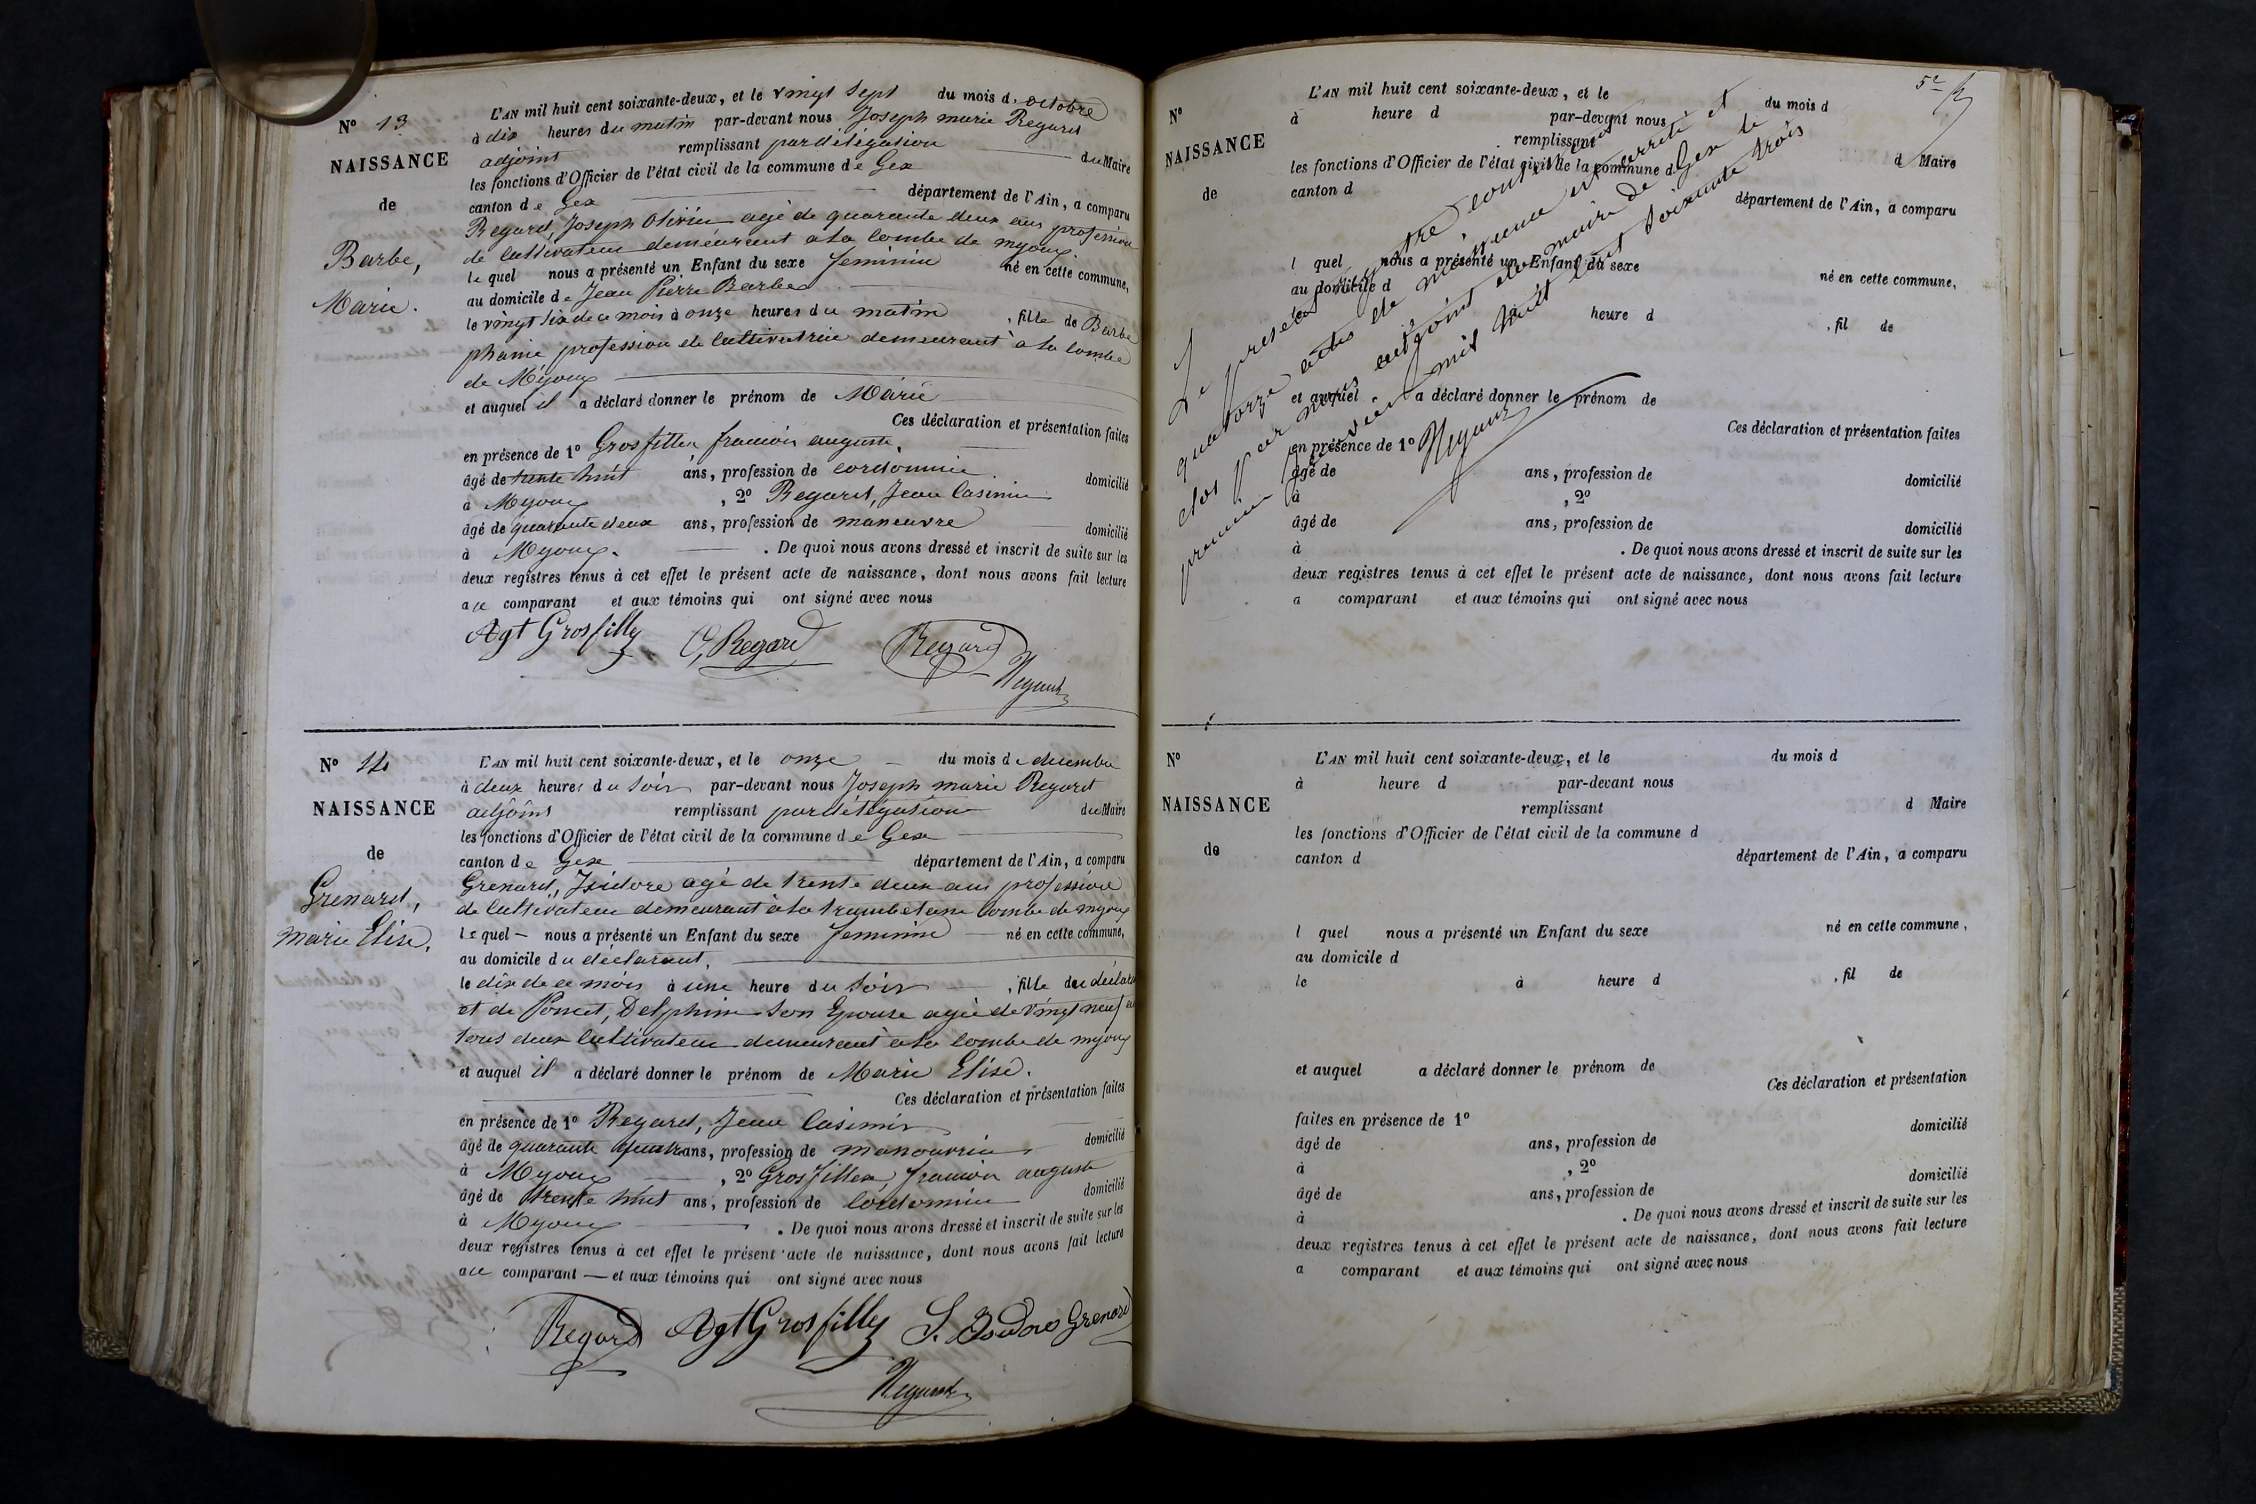 N° 13
NAISSANCE
de
Barbe,
Marie.
L'AN mil huit cent soixante-deux, et le vingt sept du mois d. octobre
à dix heures du matin par-devant nous Joseph marie Regard
adjoint remplissant par délégation du Maire
les fonctions d'Officier de l'état civil de la commune de Gex
canton de Gex département de l'Ain, a comparu
Regard, Joseph Olivier agé de quarante deux ans profession
de cultivateur demeurant à la combe de mijoux.
le quel nous a présenté un Enfant du sexe feminin né en cette commune,
au domicile de Jean Pierre Barbe
le vingt six de ce mois à onze heures du matin, fille de Barbe
phanie profession de cultivatrice demeurant à la combe
de Mijoux
et auquel il a déclaré donner le prénom de Marie
Ces déclaration et présentation faites
en présence de 1° Grosfilley francois auguste.
âgé de trente huit ans, profession de cordonnier domicilié
à Mijoux, 2° Regard, Jean Casimir
âgé de quarante deux ans, profession de maneuvre domicilié
à Mijoux. . De quoi nous avons dressé et inscrit de suite sur les
deux registres tenus à cet effet le présent acte de naissance, dont nous avons fait lecture
au comparant et aux témoins qui ont signé avec nous
Agt Grosfilley O, Regard Regard
N° 14
NAISSANCE
de
Grenard,
marie Elise.
L'AN mil huit cent soixante-deux, et le onze du mois de décembre
à deux heures du soir par-devant nous Joseph marie Regard
adjoint remplissant par délégation du Maire
les fonctions d'Officier de l'état civil de la commune de Gex
canton de Gex département de l'Ain, a comparu
Grenard, Isidore agé de trente deux ans profession
de cultivateur demeurant à la combe de mijoux
le quel nous a présenté un Enfant du sexe feminin né en cette commune,
au domicile du déclarant,
le dix de ce mois à une heure du soir, fille du déclarant
et de Poncet, Delphine son Epouse agée de vingt neuf ans
tous deux cultivateur demeurant à la combe de mijoux
et auquel il a déclaré donner le prénom de Marie Elise.
Ces déclaration et présentation faites
en présence de 1° Regard, Jean Casimir
âgé de quarante quatre ans, profession de manouvrier domicilié
à Mijoux, 2° Grosfilley francois auguste
âgé de trente huit ans, profession de cordonnier domicilié
à Mijoux . De quoi nous avons dressé et inscrit de suite sur les
deux registres tenus à cet effet le présent acte de naissance, dont nous avons fait lecture
au comparant et aux témoins qui ont signé avec nous
Regard Agt Grosfilley S. Isidore Grenard
52
N°
NAISSANCE
de
L'AN mil huit cent soixante-deux, et le du mois d
à heure d par-devant nous
remplissant d Maire
les fonctions d'Officier de l'état civil de la commune d
canton d département de l'Ain, a comparu
l quel nous a présenté un Enfant du sexe né en cette commune,
au domicile d
le à heure d , fil de
et auquel a déclaré donner le prénom de
Ces déclaration et présentation faites
en présence de 1°
âgé de ans, profession de domicilié
à , 2°
âgé de ans, profession de domicilié
à . De quoi nous avons dressé et inscrit de suite sur les
deux registres tenus à cet effet le présent acte de naissance, dont nous avons fait lecture
a comparant et aux témoins qui ont signé avec nous
Le présent registre contenant
quatorze actes de naissance est arrêté et
clos par nous adjoint au maire de Gex le
premier janvier mil huit cent soixante trois
N°
NAISSANCE
de
L'AN mil huit cent soixante-deux, et le du mois d
à heure d par-devant nous
remplissant d Maire
les fonctions d'Officier de l'état civil de la commune d
canton d département de l'Ain, a comparu
l quel nous a présenté un Enfant du sexe né en cette commune,
au domicile d
le à heure d , fil de
et auquel a déclaré donner le prénom de
Ces déclaration et présentation
faites en présence de 1° domicilié
âgé de ans, profession de
à , 2° domicilié
âgé de ans, profession de
à . De quoi nous avons dressé et inscrit de suite sur les
deux registres tenus à cet effet le présent acte de naissance, dont nous avons fait lecture
a comparant et aux témoins qui ont signé avec nous